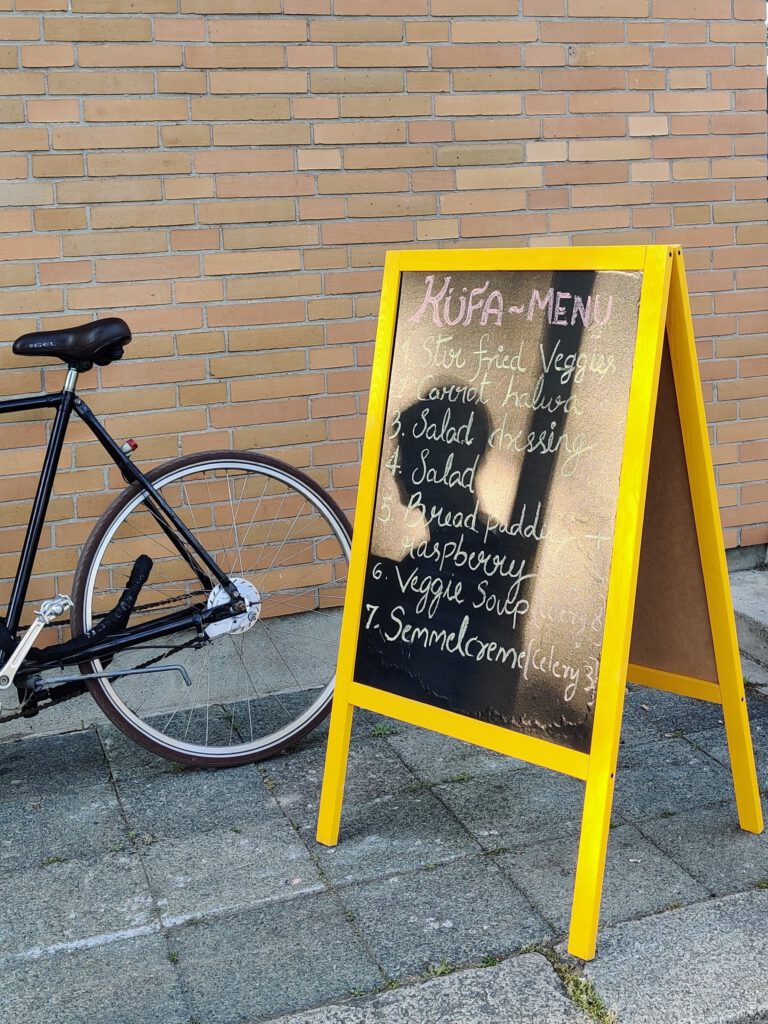 KÜFA~MENU
1. Stir fried Veggies
2. Carrot halwa
3. Salad dressing
4. Salad
5. Bread pudding +
raspberry
6. Veggie Soup
7. Semmelcreme (celery 3)
GEL